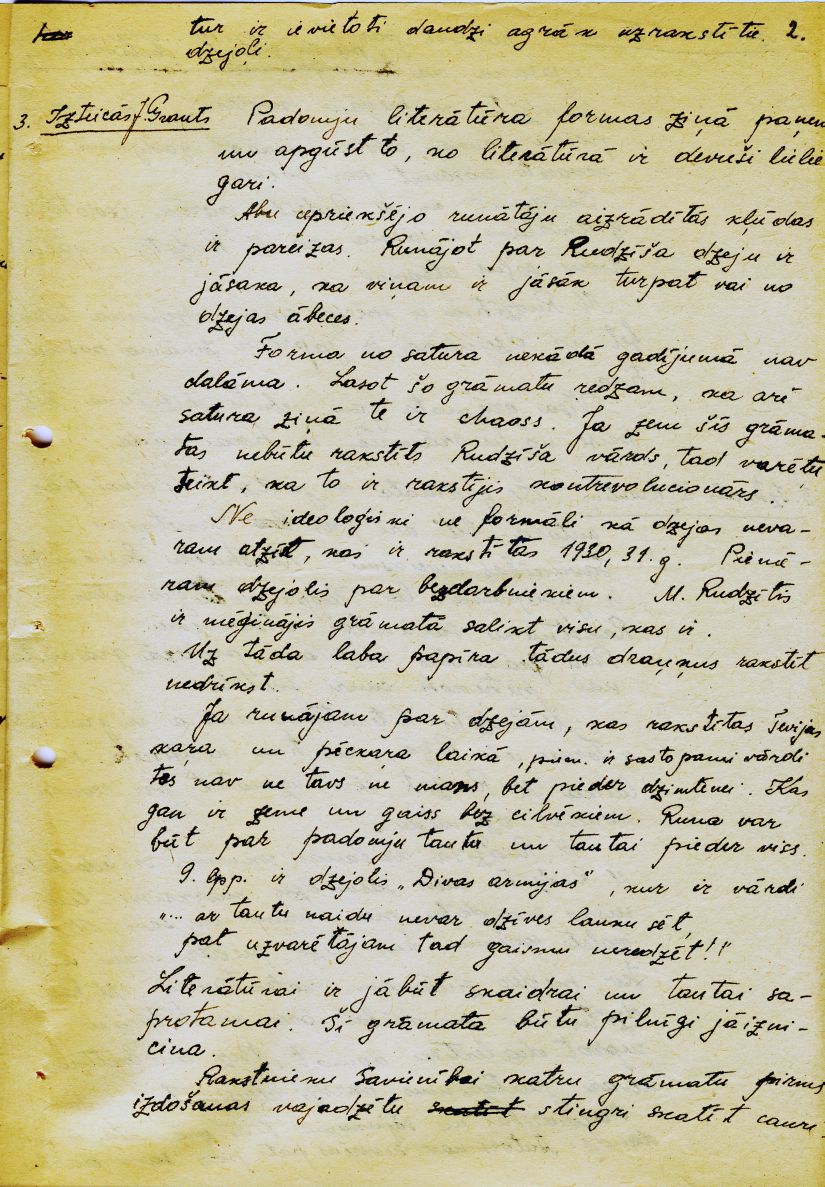 tur ir ievietoti daudzi agrāk uzrakstītie 2.
dzejoļi.
3. Izteicās J. Grants Padomju literātūra formas ziņā paņem
un apgūst to, ko literātūrā ir devuši lielie
gari.
Abu iepriekšējo runātāju aizrādītās kļūdas
ir pareizas. Runājot par Rudzīša dzeju ir
jāsaka, ka viņam ir jāsāk turpat vai no
dzejas ābeces.
Forma no satura nekādā gadījumā nav
dalāma. Lasot šo grāmatu redzam, ka arī
satura ziņā te ir chaoss. Ja zem šīs grāma-
tas nebūtu rakstīts Rudzīša vārds, tad varētu
teikt, ka to ir rakstījis kontrevolucionārs.
Ne ideoloģiski ne formāli kā dzejas neva-
ram atzīt, kas ir rakstītas 1930, 31. g. Piemē-
ram dzejolis par bezdarbniekiem. M. Rudzītis
ir mēģinājis grāmatā salikt visu, kas ir.
Uz tāda laba papīra tādus draņķus rakstīt
nedrīkst.
Ja runājam par dzejām, kas rakstītas Tēvijas
kara un pēckara laikā, piem. ir sastopami vārdi
tas nav ne tavs ne mans, bet pieder dzimtenei. Kas
gan ir zeme un gaiss bez cilvēkiem. Runa var
būt par padomju tautu un tautai pieder viss.
9. lpp. ir dzejolis „Divas armijas", kur ir vārdi
„... ar tautu naidu nevar dzīves lauku sēt,
pat uzvarētājam tad gaismu neredzēt!"
Literātūrai ir jābūt skaidrai un tautai sa-
protamai. Šī grāmata būtu pilnīgi jāizni-
cina.
Rakstnieku Savienībai katru grāmatu pirms
izdošanas vajadzētu skatīt stingri skatīt cauri.